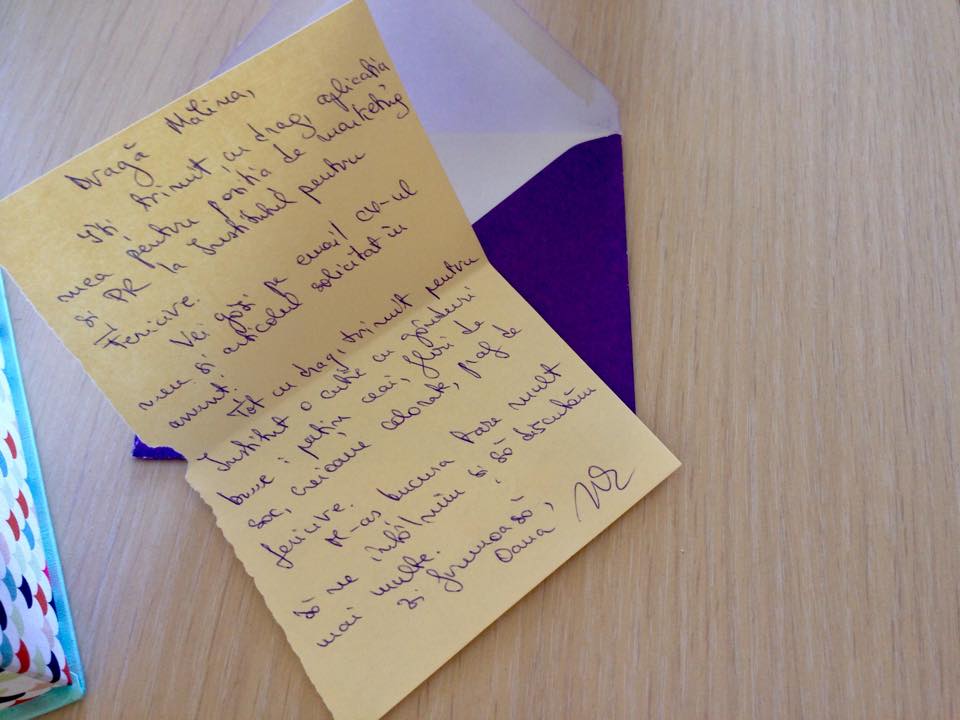 Dragă Mălina,
Îți trimit, cu drag, aplicația
mea pentru poziția de marketing
și PR la Institutul pentru
Fericire.
Vei găsi pe email CV-ul
meu și articolul solicitat în
anunț.
Tot cu drag, trimit pentru
Institut o cutie cu gânduri
bune: puțin ceai, flori de
soc, creioane colorate, praf de
fericire.
M-aș bucura tare mult
să ne întâlnim și să discutăm
mai multe.
Zi frumoasă,
Oana